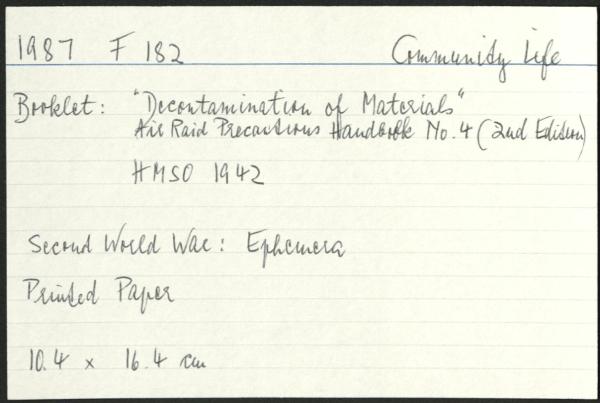 1987 F 182 Community Life
Booklet: "Decontamination of Materials"
Air Raid Precautions Handbook No. 4 (2nd Edition)
HMSO 1942
Second World War: Ephemera
Printed Paper
10.4 x 16.4 cm